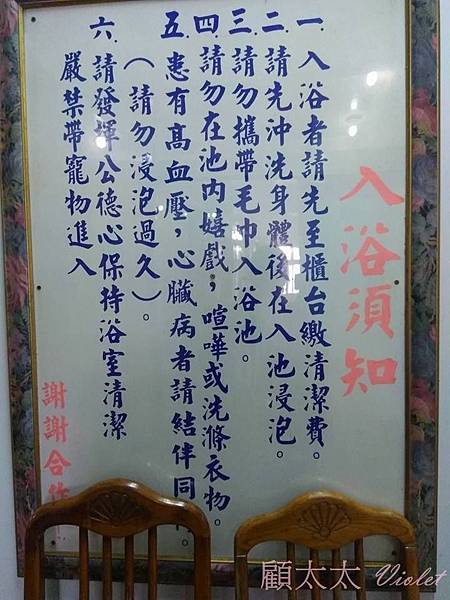 入浴須知
一.入浴者請先至櫃台繳清潔費。
二.請先沖洗身體後在入池浸泡。
三.請勿攜帶毛巾入浴池。
四.請勿在池內嬉戲，喧嘩或洗滌衣物。
五.患有高血壓，心臟病者請結伴同
（請勿浸泡過久）。
六.請發揮公德心保持浴室清潔
嚴禁帶寵物進入
謝謝合作
顧太太 Violet